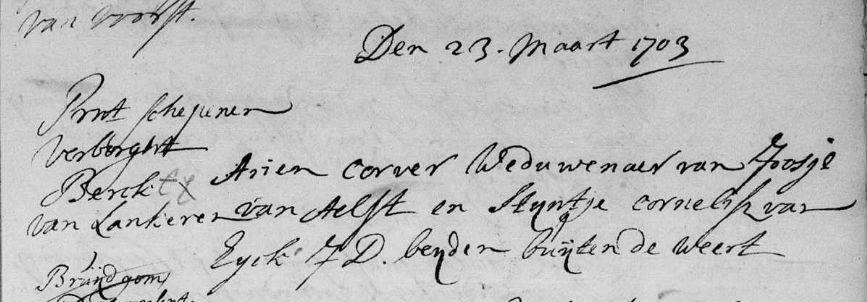 van Vorst.
Den 23. Maart 1703
Prnt schepenen
verborght
Berck
van Lankeren
Arien corver Weduwenaer van Joosje
van Aelst en Styntje cornelis van
Eyck J D. beyden buyten de weert
Bruydgom